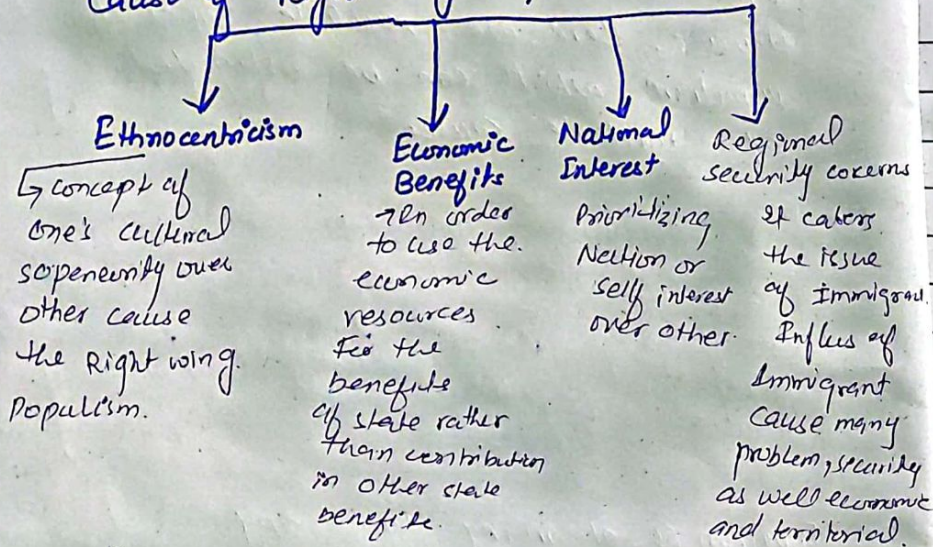 Cause of
Ethnocentricism
↳ concept of
one's cultural
sopeneurity over
other cause
the Right wing
Populism.
Economic
Benefits
→ In order
to use the
economic
resources
For the
benefits
of state rather
than contribution
in other state
benefits.
National
Interest
Prioritizing
Nation or
self interest
over other.
Regional
security cocerns
It caters
the issue
of Immigrant.
Influs of
Immigrant
cause many
problem, security
as well economic
and territorial.